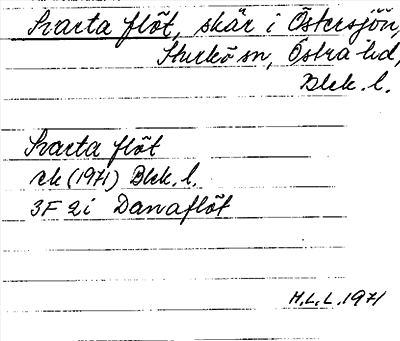 Svarta flöt, skär i Östersjön,
Sturkö sn, Östra hd,
Blek. l.
Svarta flöt
rk (1971) Blek. l.
3F 2i Danaflöt
H.L.L. 1971